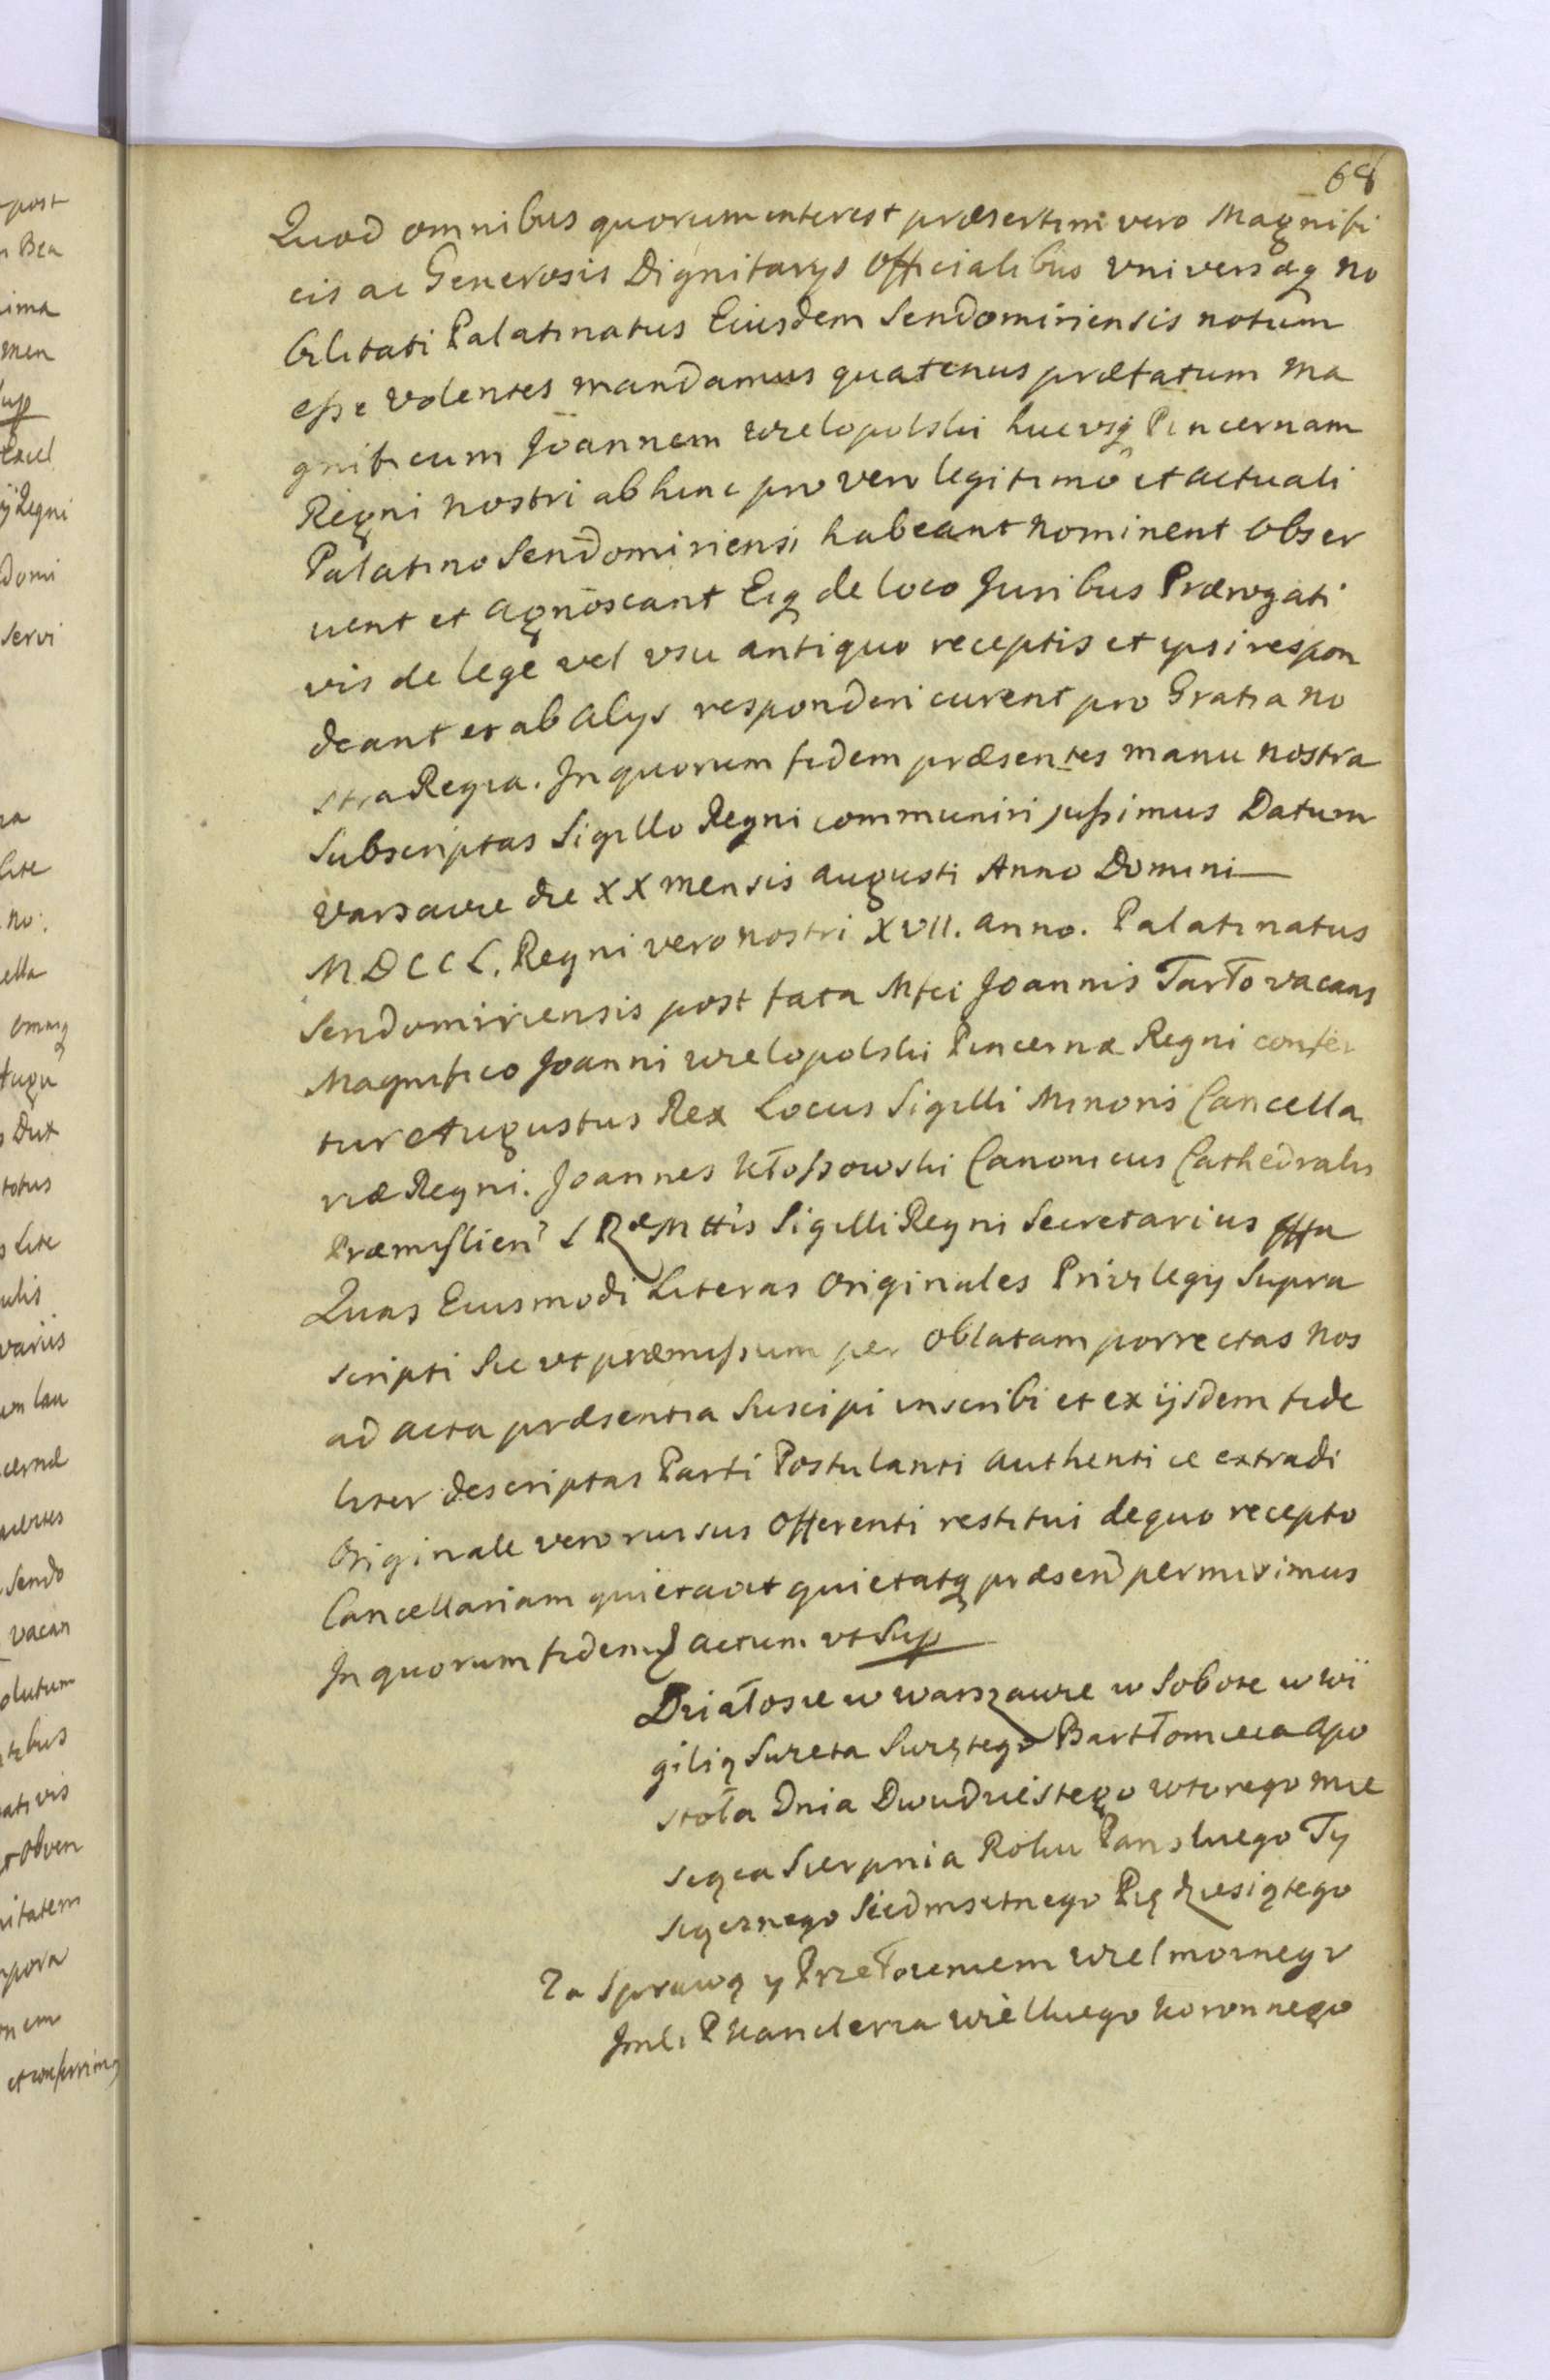 68
Quod omnibus quorum interest præsertim vero Magnifi
cis ac Generosis Dignitarys Officialibus Universæq no
bilitati Palatinatus Eiusdem Sendomiriensis notum
eſse volentes mandamus quatenus præfatum Ma
gnificum Joannem Wielopolski hucusq Pincernam
Regni nostri abhinc pro vero legitimô et actuali
Palatino Sendomiriensi habeant nominent obser
vent et agnoscant Eiq de loco Juribus Prærogati
vis de lege vel usu antiquo receptis et ipsi respon
deant et ab alys responderi curent pro Gratia no
stra Regia. In quorum fidem præsentes manu nostra
Subscriptas Sigillo Regni communiri juſsimus Datum
Varsaviæ die XX mensis augusti Anno Domini
MDCCL. Regni vero nostri XVII. anno. Palatinatus
Sendomiriensis post fata Mfci Joannis Tarło vacans
Magnifico Joanni Wielopolski Pincernæ Regni confer
tur Augustus Rex Locus Sigilli Minoris Cancella
riæ Regni. Joannes Kłoſsowski Canonicus Cathedralis
Præmislien S Ræ Mttis Sigilli Regni Secretarius
Quas Eiusmodi Literas Originales Privilegy Supra
scripti Sic ut præmiſsum per Oblatam porrectas Nos
ad acta præsentia Suscipi inscribi et ex ijsdem fide
liter descriptas Parti Postulanti authentice extradi
Originale vero rursus Offerenti restitui de quo recepto
Cancellariam quietavit quietatq præsen permisimus
In quorum fidem actum ut Sup
Działosie w Warszawie w Sobotę w Wi
gilią Swięta Swiętego Bartłomieia Apo
stoła Dnia Dwudziestego wtorego Mie
siąca Sierpnia Roku Panskiego Ty
siącznego Siedmsetnego Piędziesiątego
Za Sprawą y Przełożeniem Wielmożnego
Jmci P Kanclerza Wielkiego Koronnego
post
Bea
ima
men
Regni
domi
servi
lite
no:
ella
omnq
Augu
Dux
totus
Lite
variis
cernæ
Sendo
vacan
olutum
ativis
obven
pora
et conferrimq